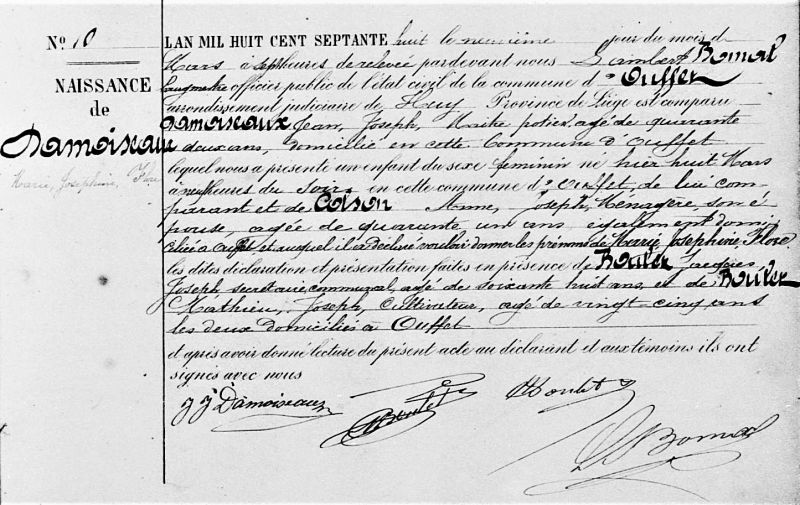 No 10
NAISSANCE
de
Damoiseaux
Marie, Josephine, Flore
LAN MIL HUIT CENT SEPTANTE huit le neuvième jour du mois d
Mars à sept heures de relevée pardevant nous Lambert Bomal
Bourgmestre officier public de l'état civil de la commune d'Ouffet
arrondissement judiciaire de Huy Province de Liège est comparu
Damoiseaux Jean, Joseph, Maitre potier, agé de quarante
deux ans, domicilié en cette Commune d'Ouffet
lequel nous a présenté un enfant du sexe feminin né hier huit Mars
à neuf heures du Soir en cette commune d'Ouffet, de lui com-
parant et de Colson Anne, Joseph, Menagère, son é
pouse, agée de quarante un ans également domi-
ciliée à Ouffet et auquel il a déclaré vouloir donner les prénoms de Marie Josephine, Flore.
les dites déclaration et présentation faites en présence de Boulet Jacques
Joseph secretaire communal, agé de soixante huit ans, et de Boulet
Mathieu, Joseph, Cultivateur, agé de vingt-cinq ans
les deux domiciliés à Ouffet
et après avoir donné lecture du présent acte au déclarant et aux témoins ils ont
signés avec nous
J J Damoiseaux Boulet M Boulet
L Bomal